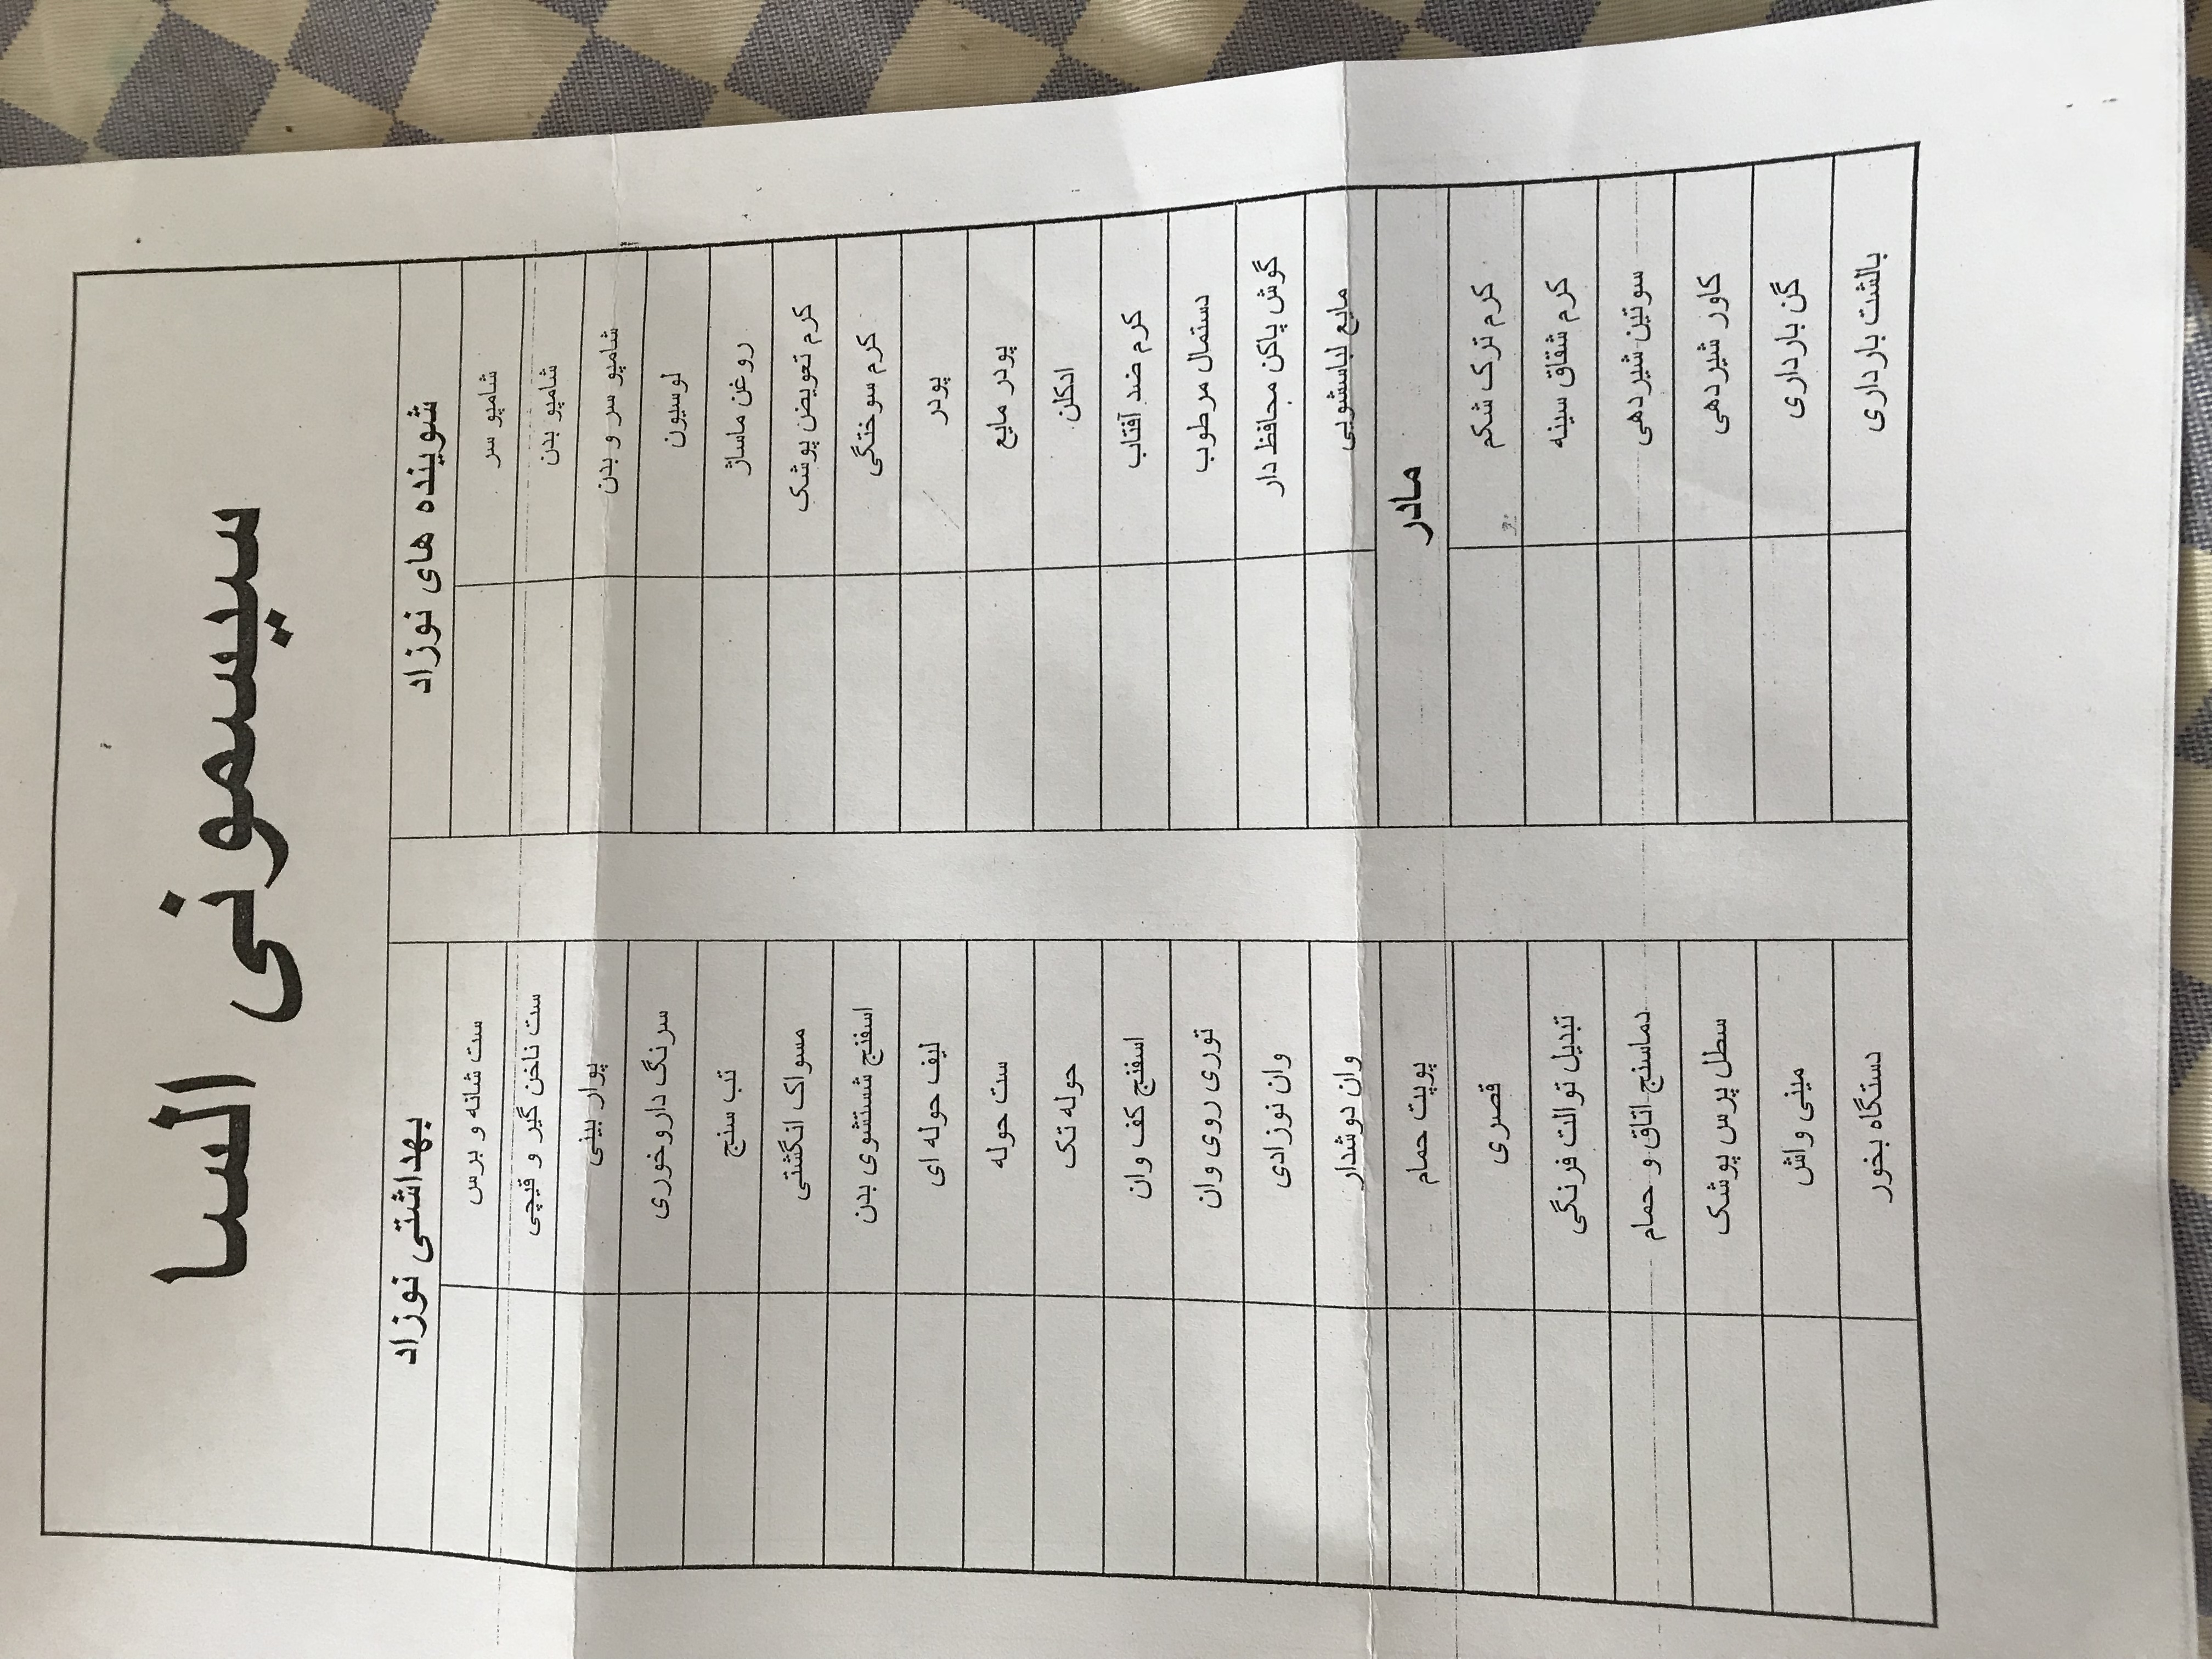 سیسمونی السا
شوینده های نوزاد
شامپو سر
شامپو بدن
شامپو سر و بدن
لوسیون
روغن ماساژ
کرم تعویض پوشک
کرم سوختگی
پودر
پودر مایع
ادکلن
کرم ضد آفتاب
دستمال مرطوب
گوش پاکن محافظ دار
مایع لباسشویی
مادر
کرم ترک شکم
کرم شقاق سینه
سوتین شیردهی
کاور شیردهی
گن بارداری
بالشت بارداری
بهداشتی نوزاد
ست شانه و برس
ست ناخن گیر و قیچی
پوار بینی
سرنگ داروخوری
تب سنج
مسواک انگشتی
اسفنج شستشوی بدن
لیف حوله ای
ست حوله
حوله تک
اسفنج کف وان
توری روی وان
وان نوزادی
وان دوشدار
پویت حمام
قصری
تبدیل توالت فرنگی
دماسنج اتاق و حمام
سطل پرس پوشک
مینی واش
دستگاه بخور